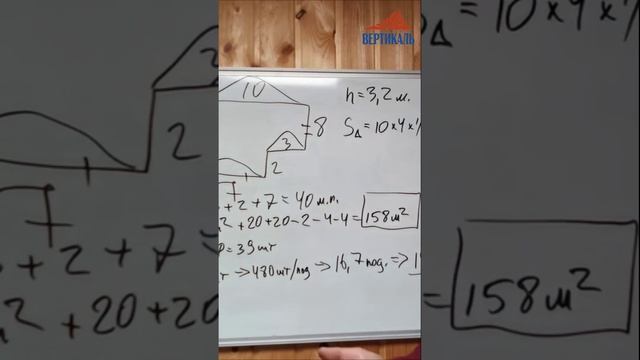 ВЕРТИКАЛЬ
10
h = 3,2 м.
8
S△ = 10 × 4 ×
3
2
7
+ 2 + 7 = 40 м.п.
+ 20 + 20 - 2 - 4 - 4 = 158 м²
= 39 шт
→ 470 шт/под → 16,7 под. ⇒
10 × 4 ×
2
7
+ 2 + 7 =
м² + 20 + 20
= 158 м²